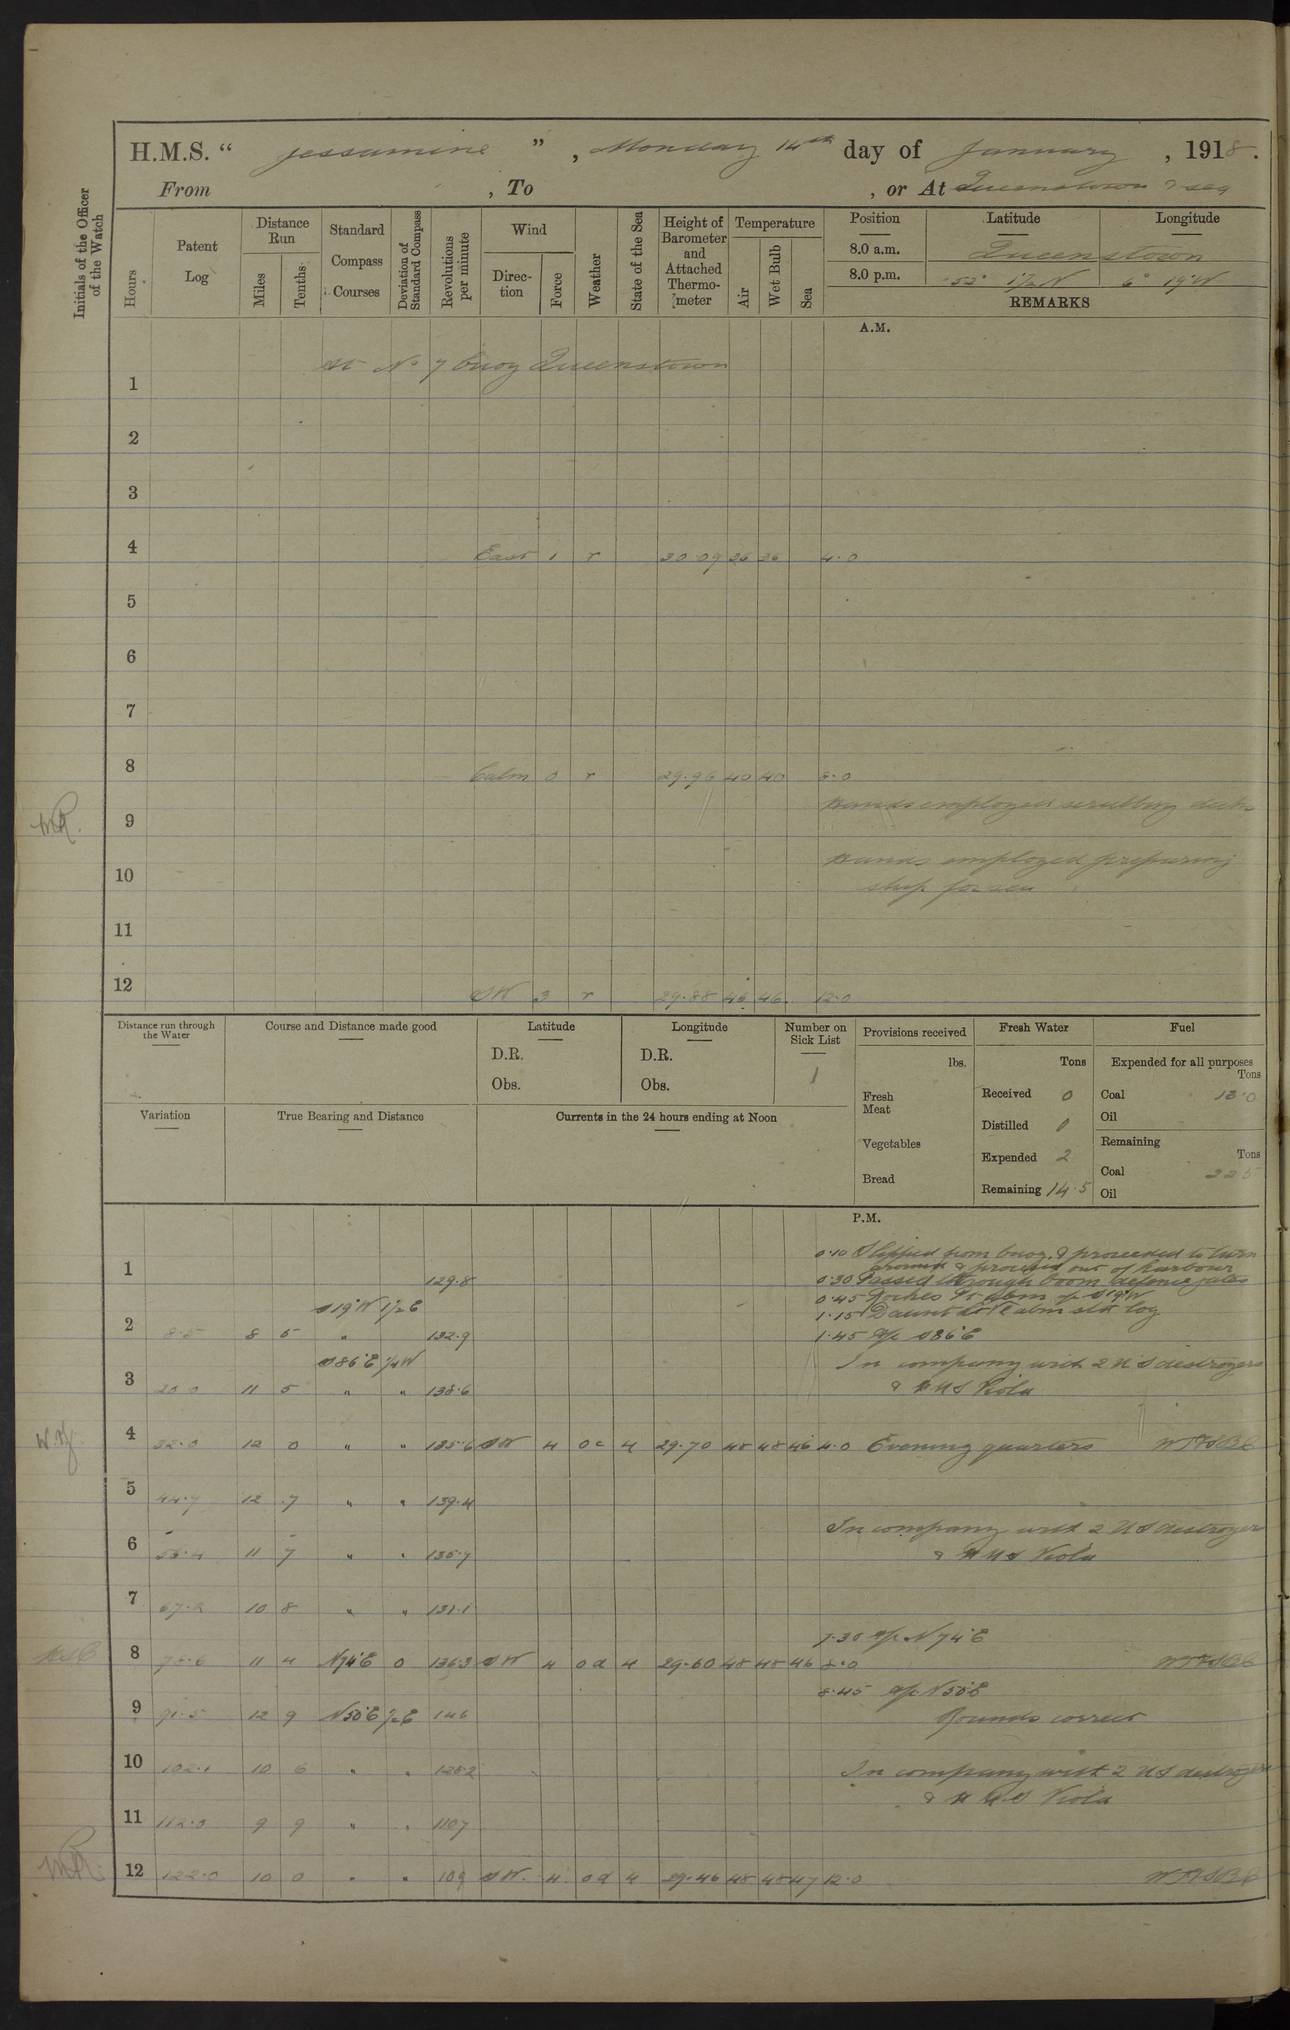 H.M.S. “ Jessamine ” , Monday 14th day of January , 1918 .
From , To , or At Queenstown & sea
Initials of the Officer of the Watch
Hours
Patent Log
Distance Run
Miles
Tenths
Standard Compass Courses
Deviation of Standard Compass
Revolutions per minute
Wind
Direction
Force
Weather
State of the Sea
Height of Barometer and Attached Thermometer
Temperature
Air
Wet Bulb
Sea
Position Latitude Longitude
8.0 a.m. Queenstown
8.0 p.m. 6° 19'W
REMARKS
A.M.
At No 7 buoy Queenstown
1
2
3
4 East 1 r 30.09 36 36 4.0
5
6
7
8 Calm 0 r 29.96 40 40 8.0
Hands employed scrubbing decks
9
Hands employed preparing
10 ship for sea
11
12 SW 3 r 29.88 46 46 12.0
Distance run through the Water
Course and Distance made good
Latitude
D.R.
Obs.
Longitude
D.R.
Obs.
Number on Sick List
1
Provisions received
lbs.
Fresh Meat
Vegetables
Bread
Fresh Water
Tons
Received 0
Distilled 0
Expended 2
Remaining 14.5
Fuel
Expended for all purposes
Tons
Coal 13.0
Oil
Remaining
Tons
Coal 225
Oil
Variation
True Bearing and Distance
Currents in the 24 hours ending at Noon
P.M.
0.10 Slipped from buoy & proceeded to turn
around & proceed out of harbour
1 129.8 0.30 Passed through boom defence gates
S19°W 1/2E 0.45 Roches Pt abm a/c S19°W
1.15 Daunt Lt V abm set log
2 8.5 8 5 " 132.9 1.45 a/c S86°E
S86°E 1/4W In company with 2 US destroyers
3 20.0 11 5 " " 138.6 & HMS Viola
4 32.0 12 0 " " 135.6 SW 4 oc 4 29.70 48 48 46 4.0 Evening quarters
5 44.7 12 7 " " 139.4
In company with 2 US destroyers
6 56.4 11 7 " " 135.7 & HMS Viola
7 67.2 10 8 " " 131.1
7.30 a/c N74°E
8 78.6 11 4 N74°E 0 136.3 SW 4 od 4 29.60 48 48 46 8.0
8.45 a/c N50°E
9 91.5 12 9 N50°E 1/2E 146 Rounds correct
10 102.1 10 6 " " 128.2 In company with 2 US destroyers
& HMS Viola
11 112.0 9 9 " " 110.7
12 122.0 10 0 " " 109 SW. 4 od 4 29.46 48 48 47 12.0